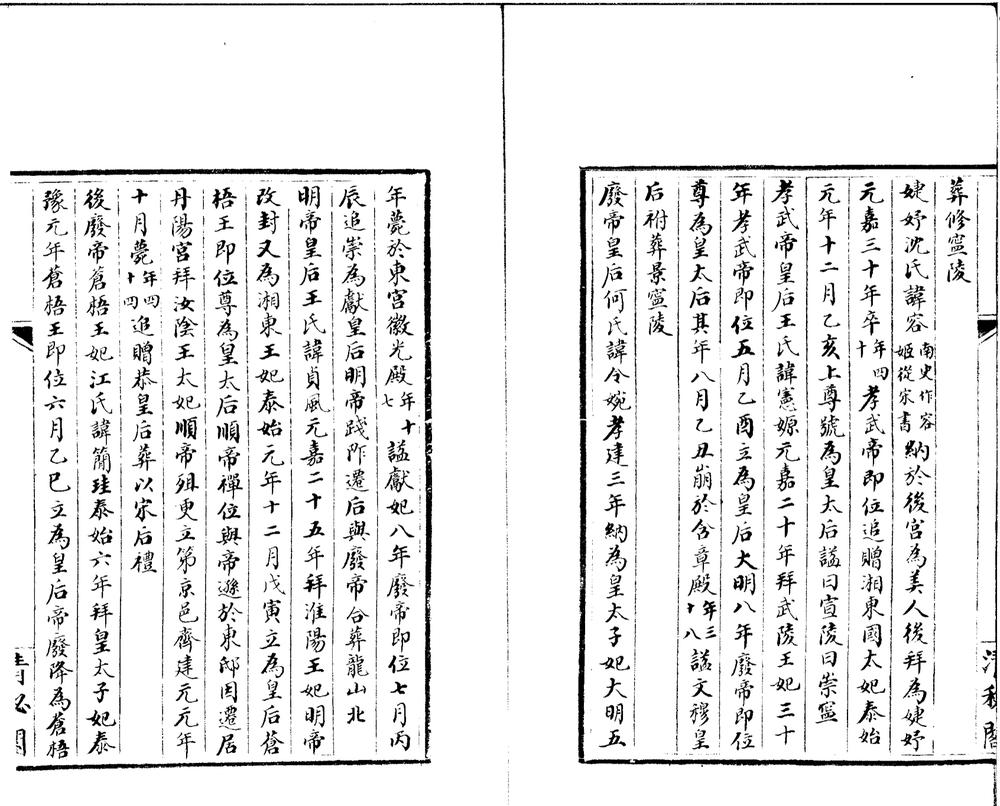 葬修寧陵
婕妤沈氏諱容南史作容姬從宋書納於後宮為美人後拜為婕妤
元嘉三十年卒年四十孝武帝即位追贈湘東國太妃泰始
元年十二月乙亥上尊號為皇太后諡曰宣陵曰崇寧
孝武帝皇后王氏諱憲嫄元嘉二十年拜武陵王妃三十
年孝武帝即位五月乙酉立為皇后大明八年廢帝即位
尊為皇太后其年八月乙丑崩於含章殿年三十八諡文穆皇
后祔葬景寧陵
廢帝皇后何氏諱令婉孝建三年納為皇太子妃大明五
年薨於東宮徽光殿年十七諡獻妃八年廢帝即位七月丙
辰追崇為獻皇后明帝踐阼遷后與廢帝合葬龍山北
明帝皇后王氏諱貞風元嘉二十五年拜淮陽王妃明帝
改封又為湘東王妃泰始元年十二月戊寅立為皇后蒼
梧王即位尊為皇太后順帝禪位與帝遜於東邸因遷居
丹陽宮拜汝陰王太妃順帝殂更立第京邑齊建元元年
十月薨年四十四追贈恭皇后葬以宋后禮
後廢帝蒼梧王妃江氏諱簡珪泰始六年拜皇太子妃泰
豫元年蒼梧王即位六月乙巳立為皇后帝廢降為蒼梧